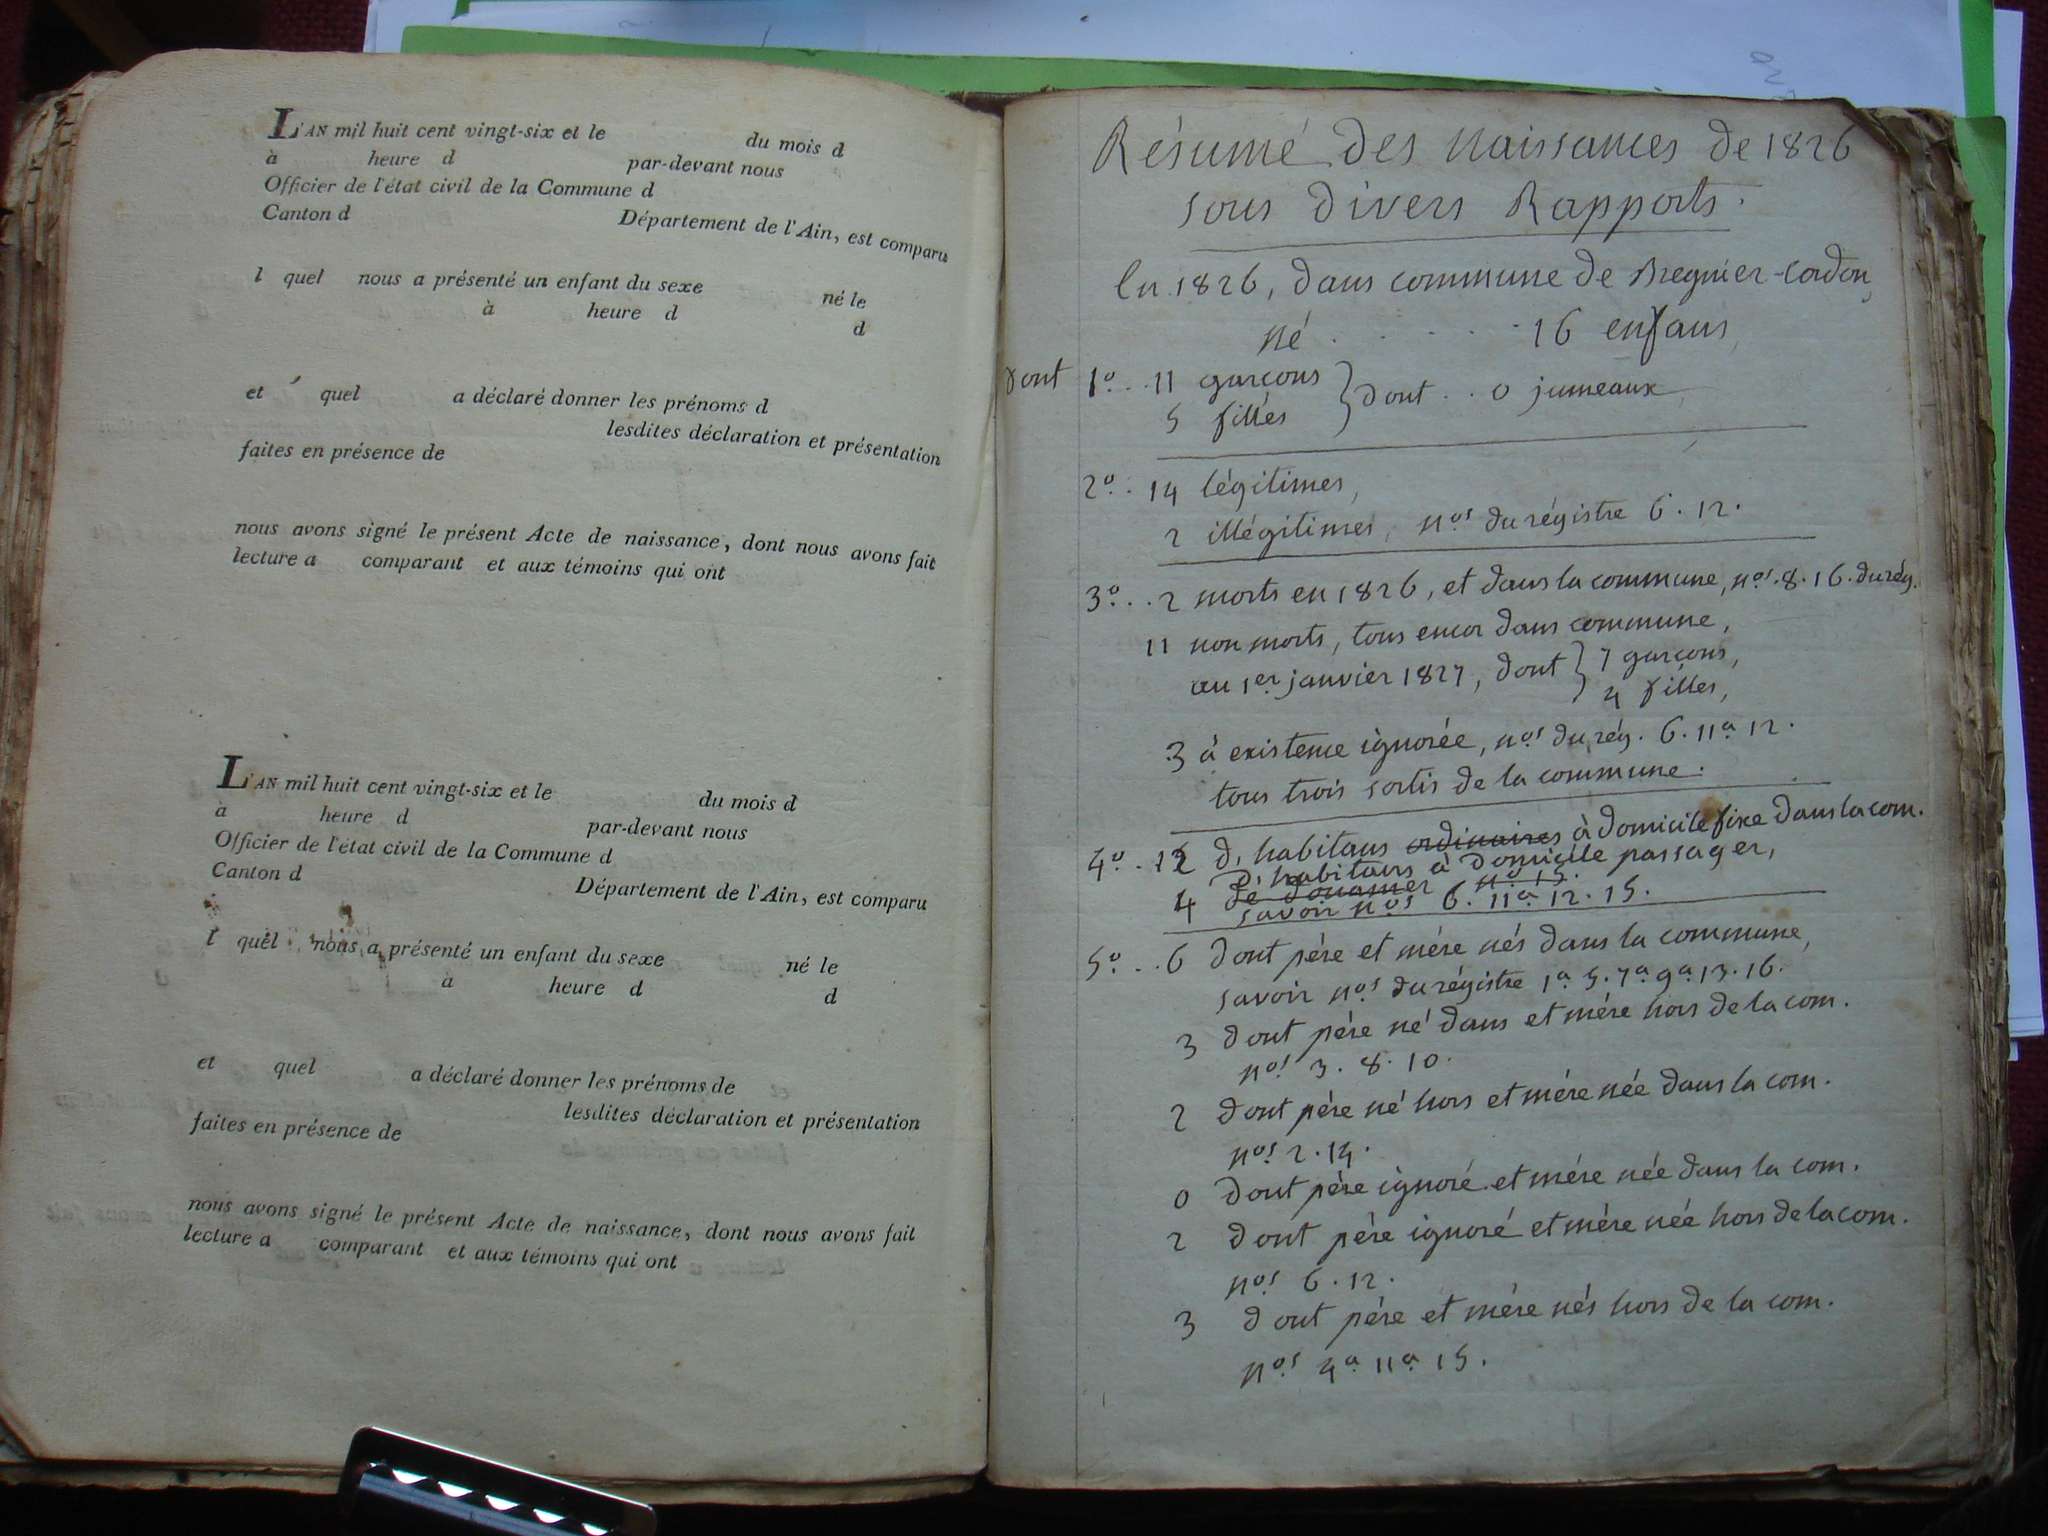 L'AN mil huit cent vingt-six et le du mois d
à heure d par-devant nous
Officier de l'état civil de la Commune d
Canton d Département de l'Ain, est comparu
l quel nous a présenté un enfant du sexe né le
à heure d d
et quel a déclaré donner les prénoms d
lesdites déclaration et présentation
faites en présence de
nous avons signé le présent Acte de naissance, dont nous avons fait
lecture a comparant et aux témoins qui ont
L'AN mil huit cent vingt-six et le du mois d
à heure d par-devant nous
Officier de l'état civil de la Commune d
Canton d Département de l'Ain, est comparu
l quel nous a présenté un enfant du sexe né le
à heure d d
et quel a déclaré donner les prénoms de
lesdites déclaration et présentation
faites en présence de
nous avons signé le présent Acte de naissance, dont nous avons fait
lecture a comparant et aux témoins qui ont
Résumé des naissances de 1826
sous divers Rapports.
En 1826, dans commune de Bregnier-Cordon,
né . . . . 16 enfans,
dont 1º . . 11 garçons } dont . . 0 jumeaux,
5 filles
2º . . 14 légitimes,
2 illégitimes, nos du régistre 6 . 12 .
3º . . 2 morts en 1826, et dans la commune, nos . 8 . 16 . du rég.
11 non morts, tous encor dans commune,
au 1er janvier 1827, dont } 7 garçons,
4 filles,
3 à existence ignorée, nos du rég . 6 . 11a 12 .
tous trois sortis de la commune .
4º . . 12 d'habitans ordinaires à domicile fixe dans la com.
d'habitans à domicile passager,
4 de douanier nº 15 .
savoir nos 6 . 11a 12 . 15 .
5º . . 6 dont père et mère nés dans la commune,
savoir nos du régistre 1a 5 . 7a 9a 13 . 16 .
3 dont père né dans et mère hors de la com .
nos 3 . 8 . 10 .
2 dont père né hors et mère née dans la com .
nos 2 . 14 .
0 dont père ignoré et mère née dans la com .
2 dont père ignoré et mère née hors de la com .
nos 6 . 12 .
3 dont père et mère nés hors de la com .
nos 4a 11a 15 .